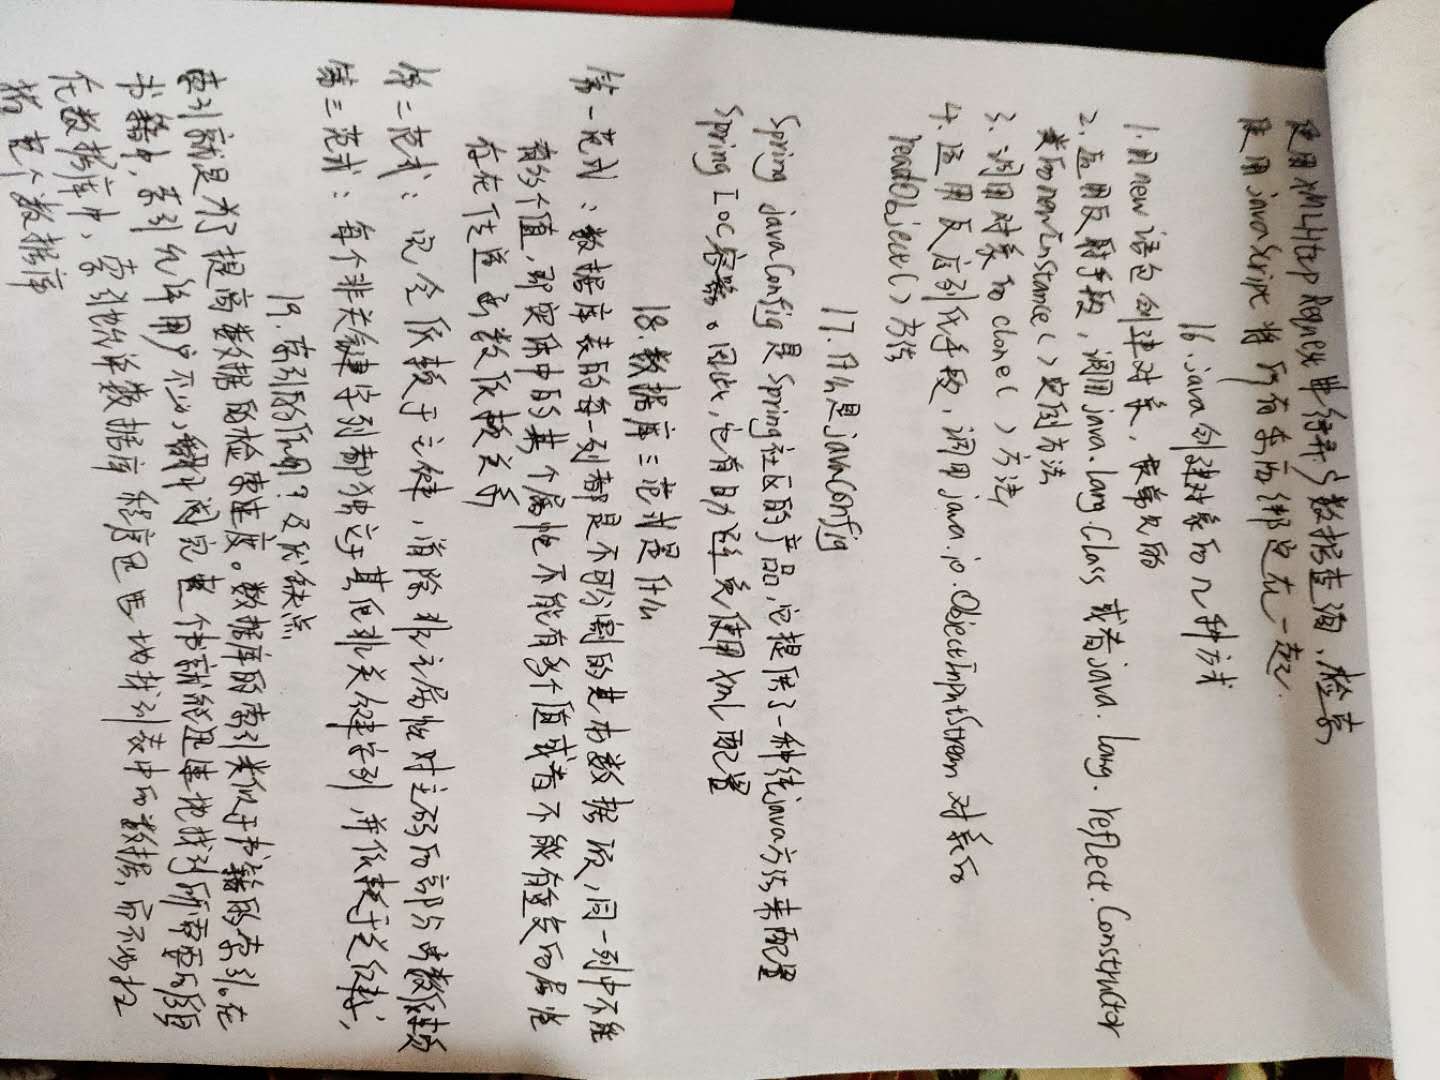 使用XMLHttpRequest进行异步数据查询、检索
使用javaScript将所有东西绑定在一起.
16.java创建对象的几种方式
1.用new语句创建对象,最常见的
2.运用反射手段,调用java.lang.Class或者java.lang.reflect.Constructor
类的newInstance()实例方法
3.调用对象的clone()方法
4.运用反序列化手段,调用java.io.ObjectInputStream对象的
readObject()方法
17.什么是javaConfig
Spring javaConfig是Spring社区的产品,它提供了一种纯java方法来配置
Spring IoC容器。因此,它有助于避免使用XML配置
18.数据库三范式是什么
第一范式:数据库表的每一列都是不可分割的基本数据项,同一列中不能
有多个值,即实体中的某个属性不能有多个值或者不能有重复的属性
存在传递函数依赖关系
第二范式:完全依赖于主键,消除非主属性对主码的部分函数依赖
第三范式:每个非关键字列都独立于其他非关键字列,并依赖于关键字,
19.索引的作用?及优缺点
索引就是为了提高数据的检索速度。数据库的索引类似于书籍的索引。在
书籍中,索引允许用户不必翻阅完整个书就能迅速地找到所需要的
在数据库中,索引也允许数据库程序迅速地找到表中的数据,而不必扫
描整个数据库